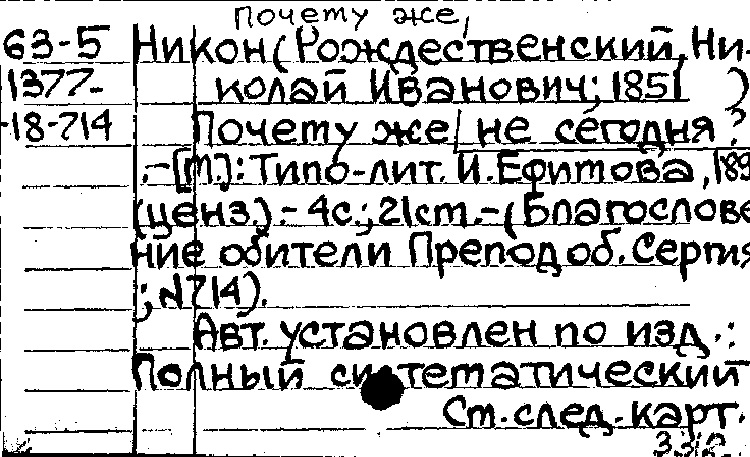 Почему же,
63-5 Никон (Рождественский, Ни-
1377- колай Иванович; 1851 )
-18-714 Почему же не сегодня?
.-[М.]: Типо-лит. И. Ефимова, 189
(ценз.).- 4с.; 21см.- (Благослове
ние обители Преподоб. Сергия
; №714).
Авт. установлен по изд.:
Полный систематический
См. след. карт.